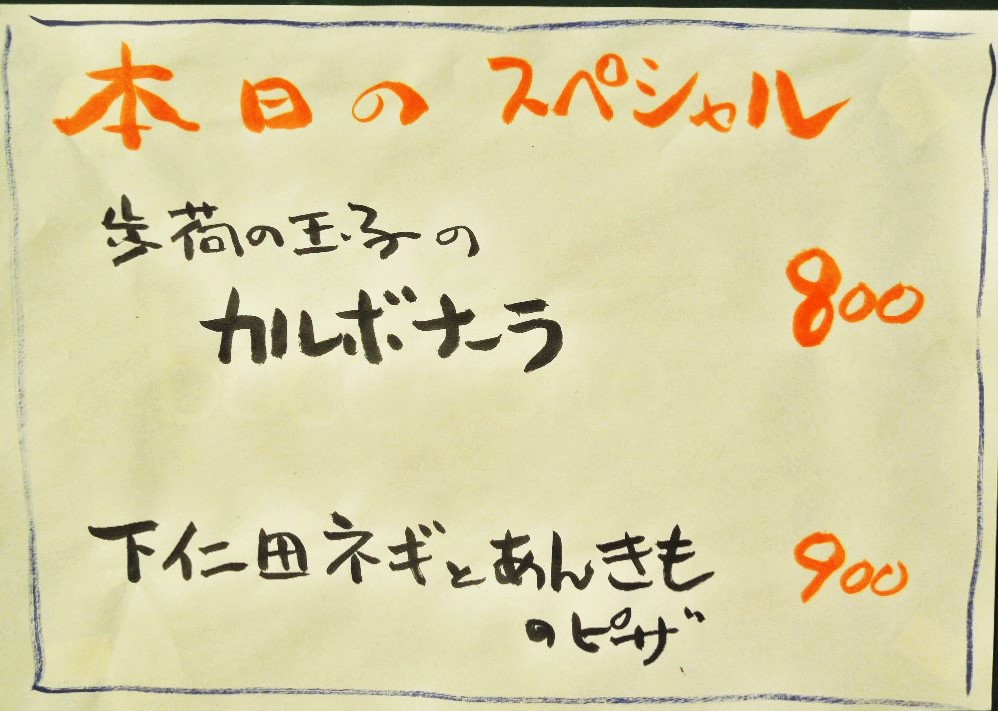 本日のスペシャル
歩荷の玉子の
カルボナーラ
800
下仁田ネギとあんきも
のピザ
900